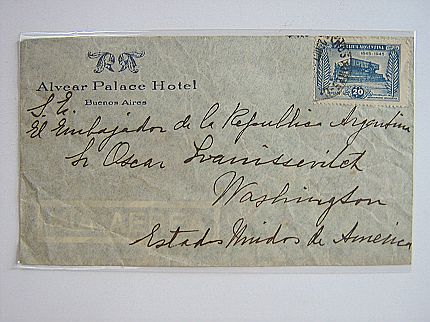 Alvear Palace Hotel
Buenos Aires
REPUBLICA ARGENTINA
1845-1945
20
S. E.
El Embajador de la Republica Argentina
Sr Oscar Ivanissevitch
Washington
Estados Unidos de América
VIA AEREA